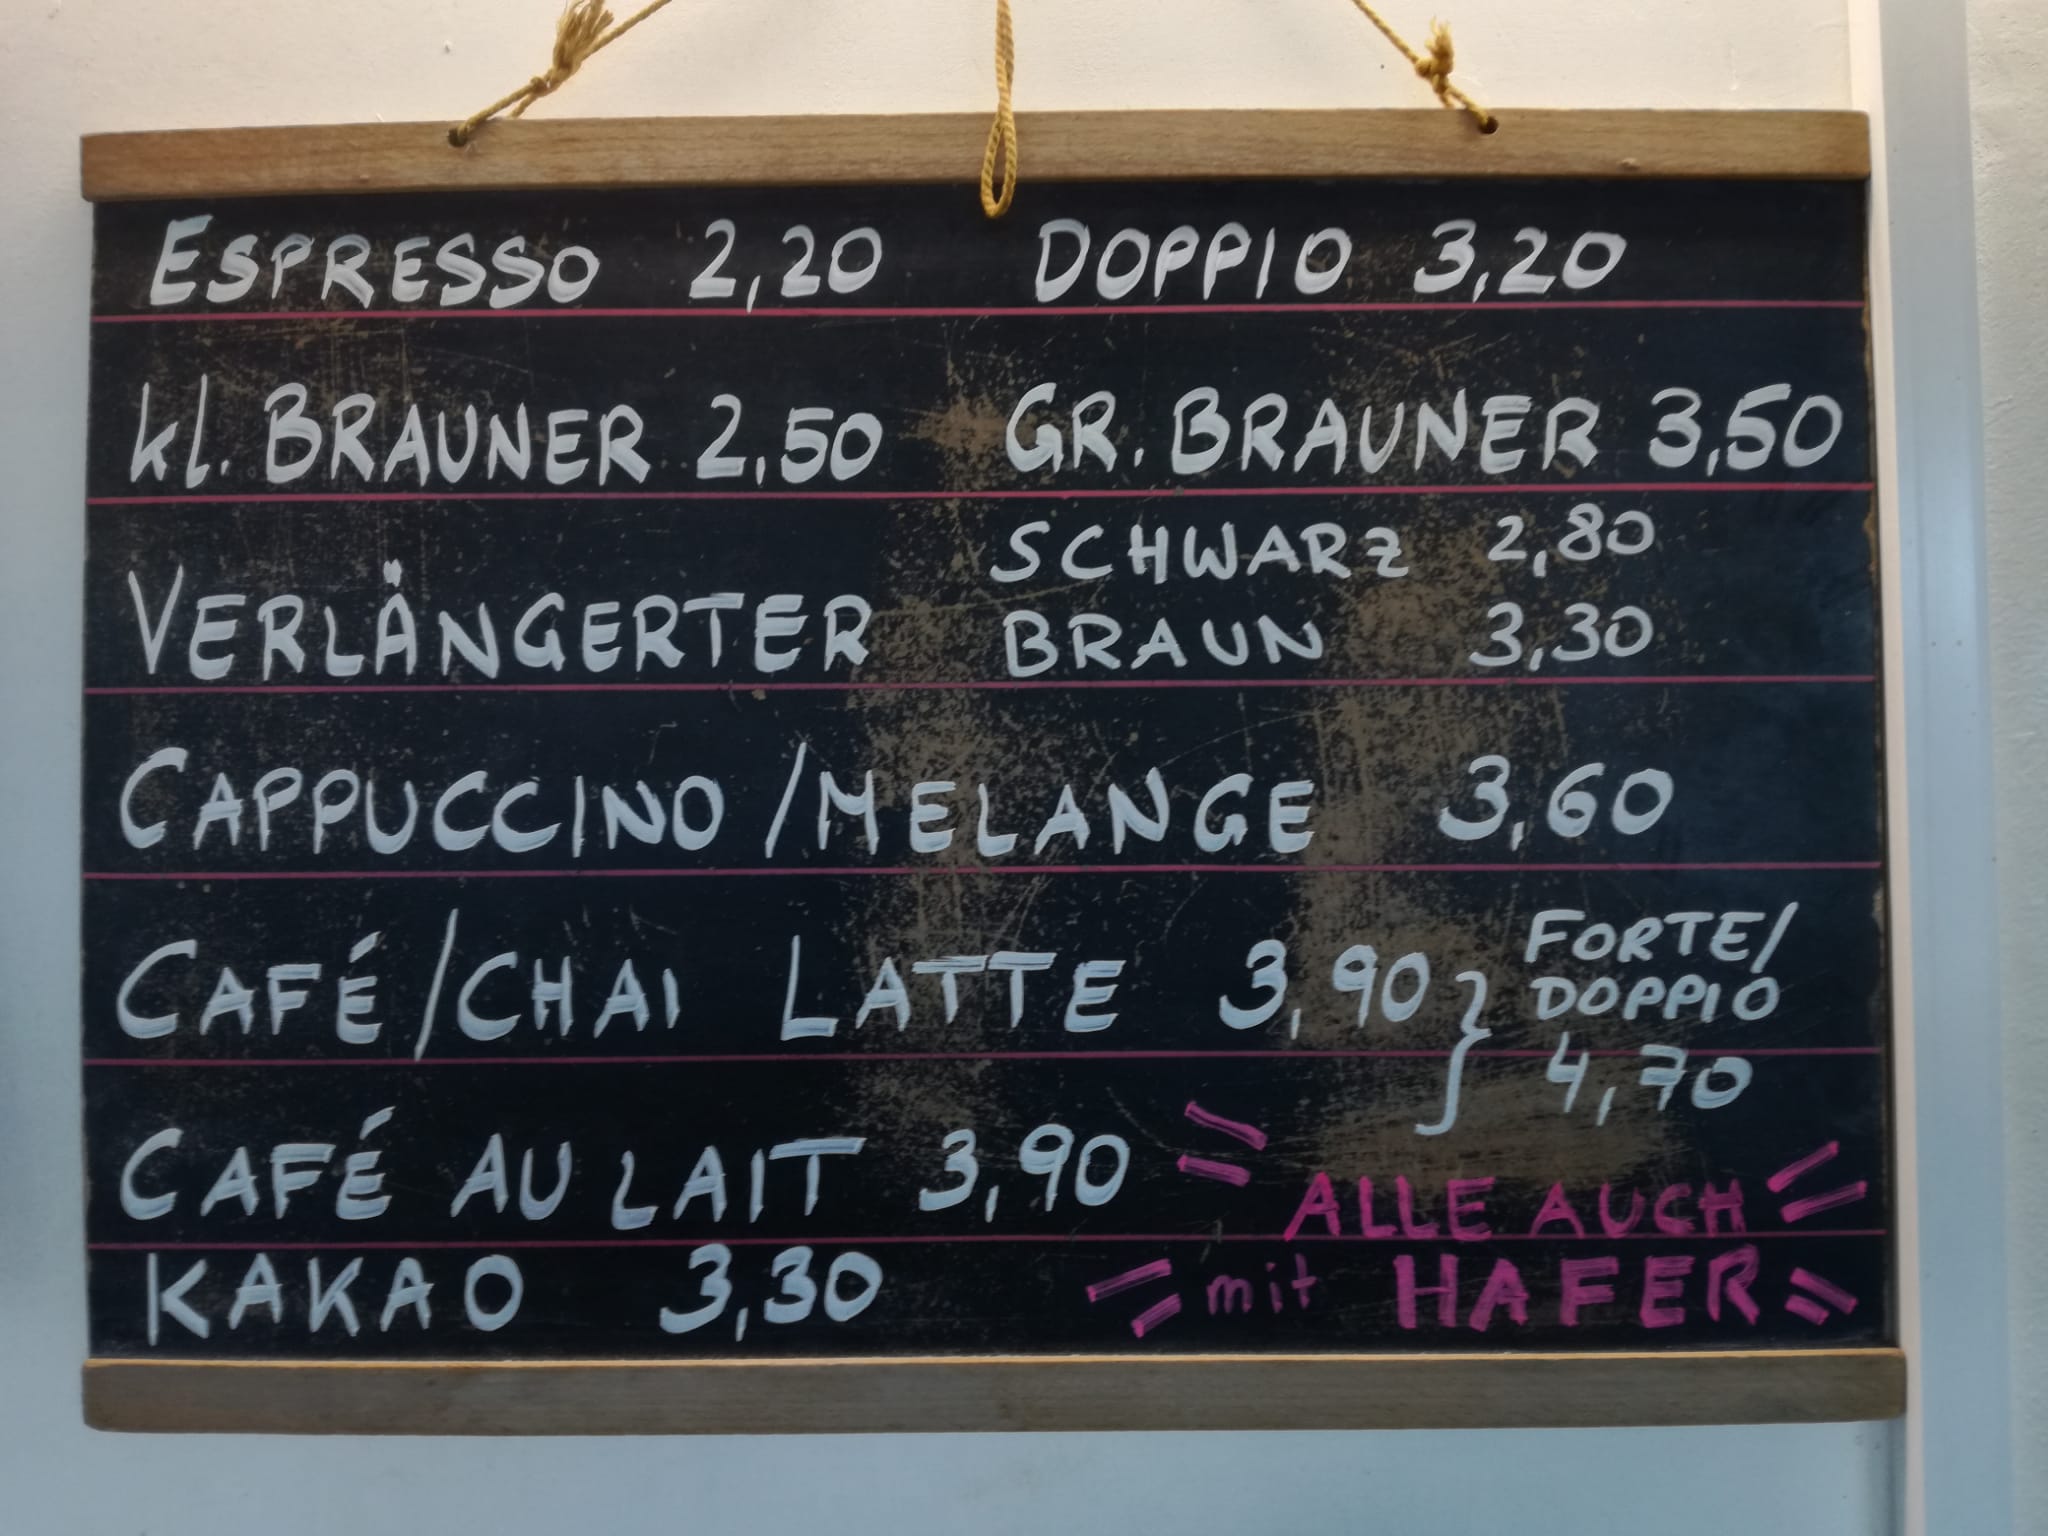 ESPRESSO 2,20 DOPPIO 3,20
kl. BRAUNER 2,50 GR. BRAUNER 3,50
SCHWARZ 2,80
VERLÄNGERTER BRAUN 3,30
CAPPUCCINO/MELANGE 3,60
FORTE/
CAFÉ/CHAI LATTE 3,90 } DOPPIO
4,70
CAFÉ AU LAIT 3,90
ALLE AUCH
KAKAO 3,30 mit HAFER